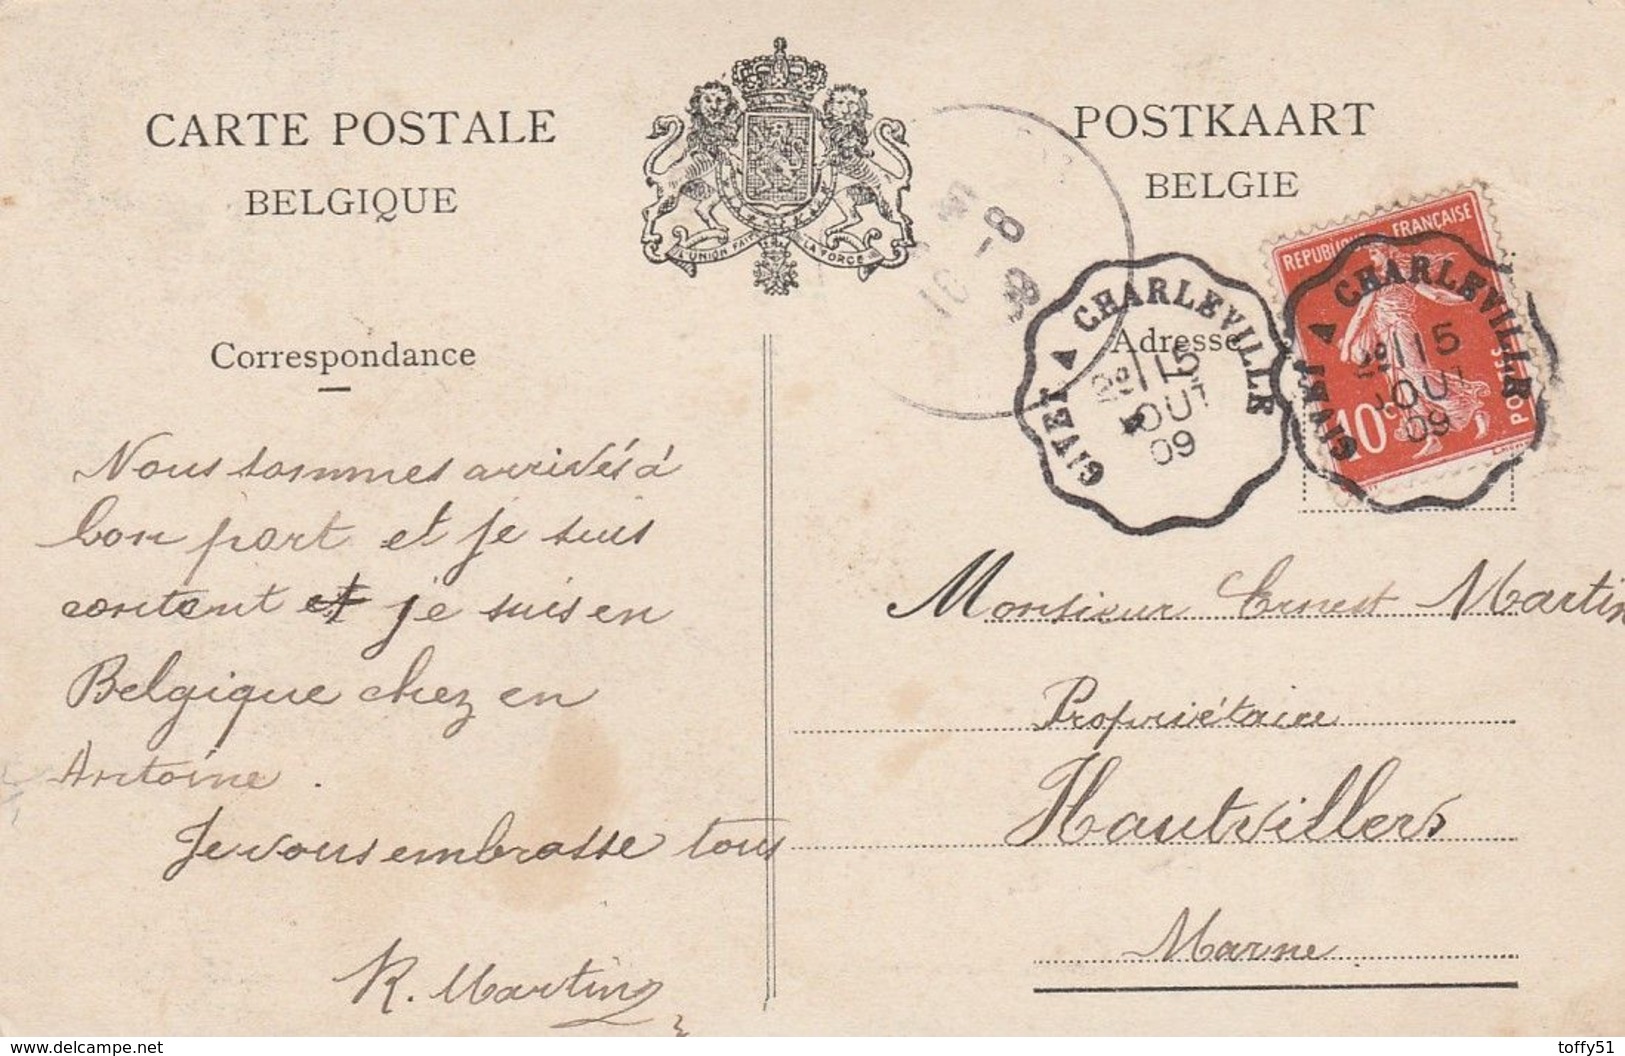 CARTE POSTALE
BELGIQUE
POSTKAART
BELGIE
L'UNION FAIT LA FORCE
Correspondance
Adresse
REPUBLIQUE FRANÇAISE
10c
POSTES
GIVET CHARLEVILLE
15
OUT
09
GIVET CHARLEVILLE
15
OUT
09
Nous sommes arrivés à
bon port et je suis
content et je suis en
Belgique chez en
Antoine.
Je vous embrasse tous
R. Martin
Monsieur Ernest Martin
Propriétaire
Hautvillers
Marne
www.delcampe.net
toffy51